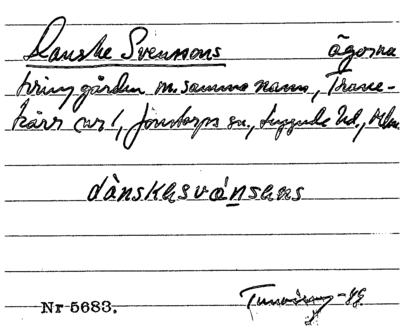 Danske Svenssons ägorna
kring gården m. samma namn, Trane-
kärr nr 1, Jonstorps sn, Luggude hd, Mlm.
dànskɘsvǻnsɘns
Nr 5683.